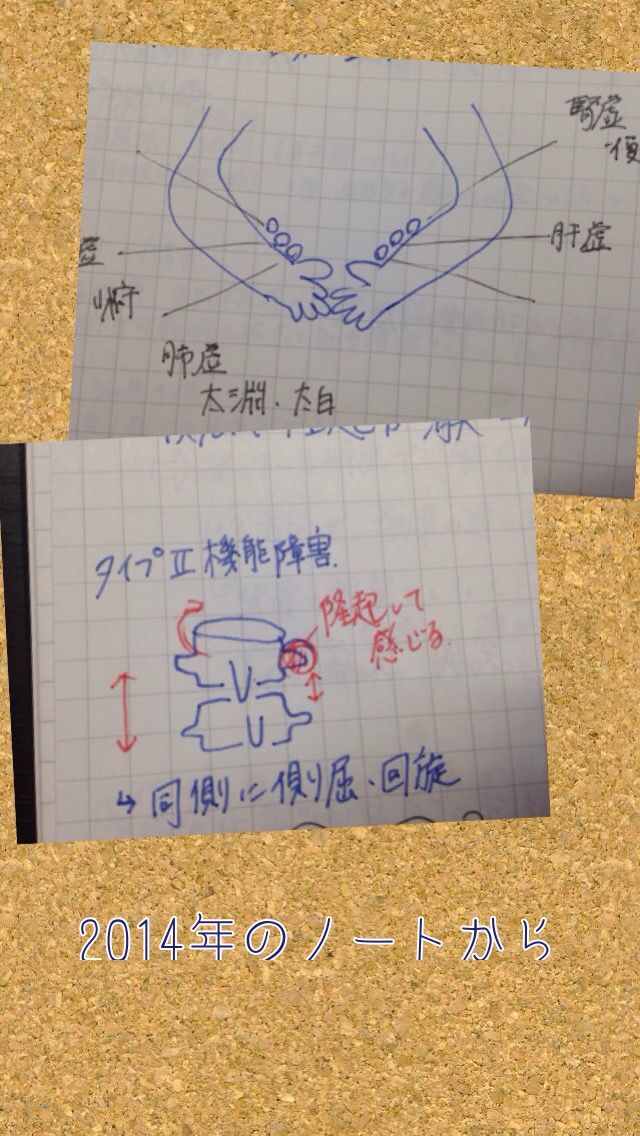 腎虚
復
肝虚
虚
肺虚
太淵・太白
タイプⅡ機能障害
隆起して
感じる
↳ 同側に側屈・回旋
2014年のノートから